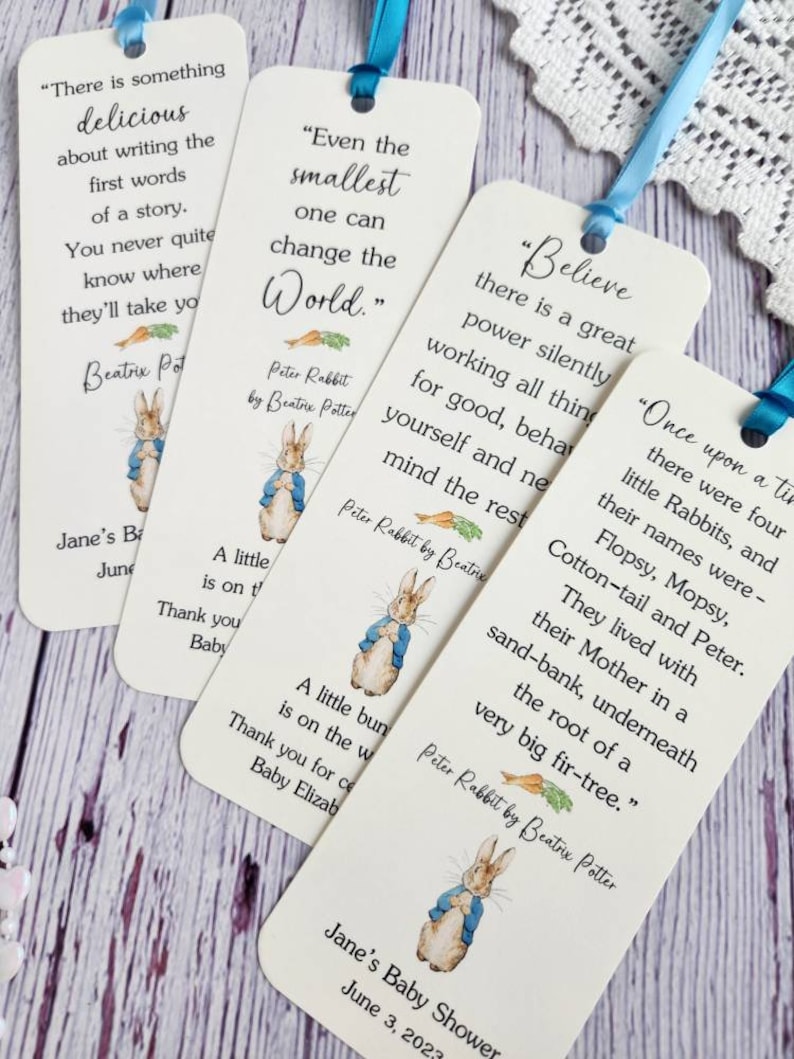 “There is something
delicious
about writing the
first words
of a story.
You never quite
know where
they’ll take yo
Beatrix Pot
Jane’s Ba
June
“Even the
smallest
one can
change the
World.”
Peter Rabbit
by Beatrix Potter
A little
is on the
Thank you
Baby
“Believe
there is a great
power silently
working all thing
for good, behav
yourself and ne
mind the rest
Peter Rabbit by Beatrix
A little bun
is on the w
Thank you for ce
Baby Elizab
“Once upon a tim
there were four
little Rabbits, and
their names were-
Flopsy, Mopsy,
Cotton-tail and Peter.
They lived with
their Mother in a
sand-bank, underneath
the root of a
very big fir-tree.”
Peter Rabbit by Beatrix Potter
Jane’s Baby Shower
June 3, 2023